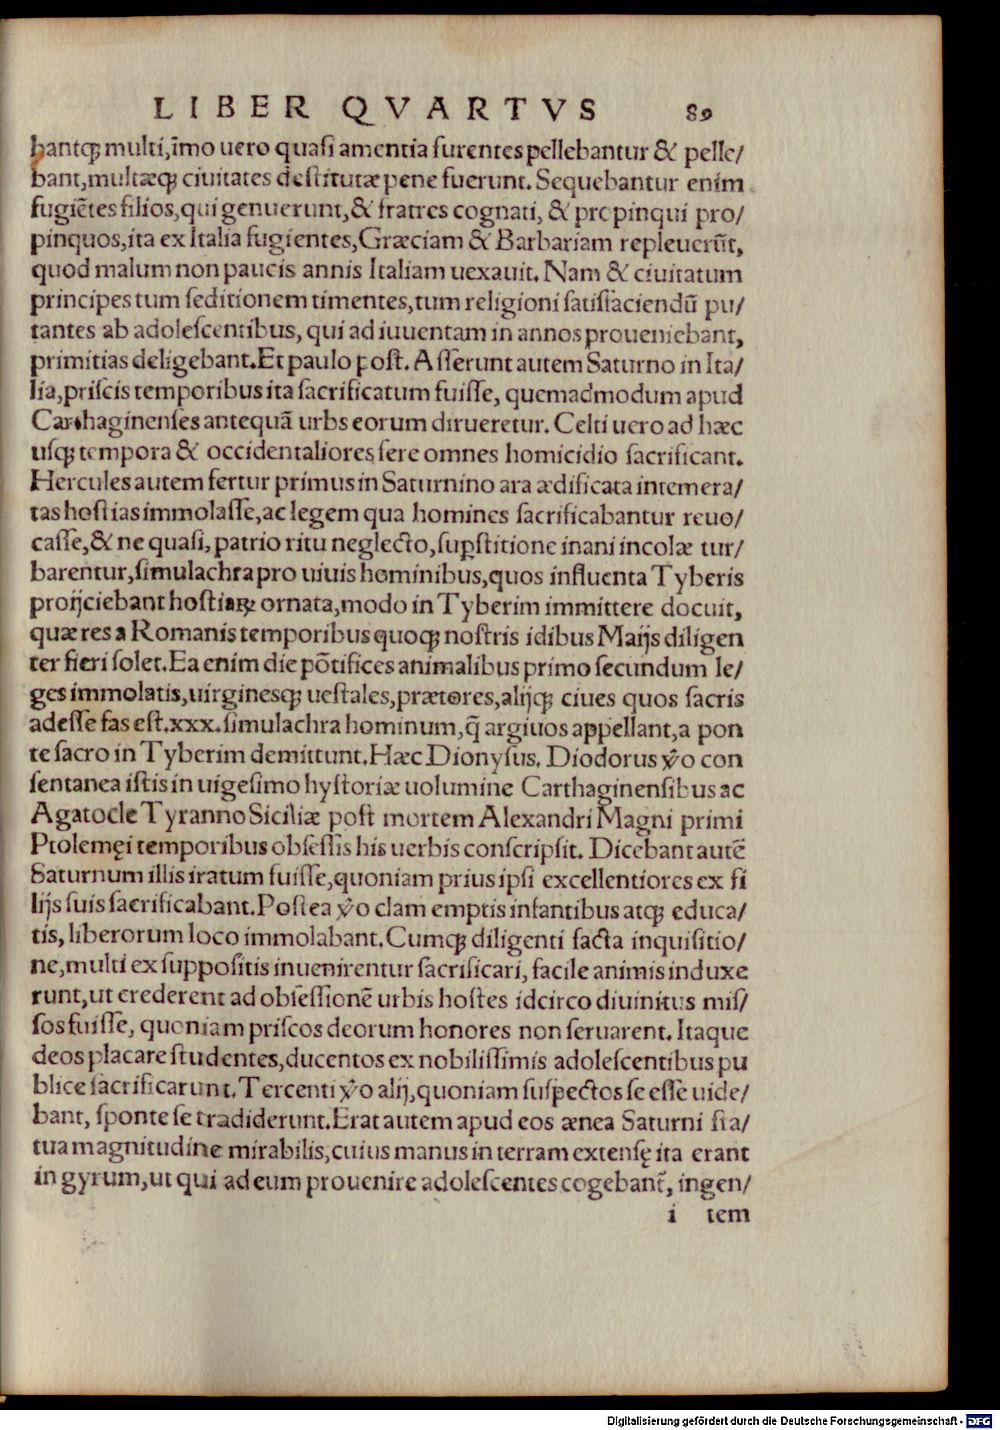 LIBER QVARTVS 89
bantqꝫ multi, īmo uero quasi amentia furentes pellebantur & pelle/
bant, multæqꝫ ciuitates destitutæ pene fuerunt. Sequebantur enim
fugiētes filios, qui genuerunt, & fratres cognati, & propinqui pro/
pinquos, ita ex Italia fugientes, Græciam & Barbariam repleuerūt,
quod malum non paucis annis Italiam uexauit. Nam & ciuitatum
principes tum seditionem timentes, tum religioni satisfaciendū pu/
tantes ab adolescentibus, qui ad iuuentam in annos proueniebant,
primitias deligebant. Et paulo post. Asserunt autem Saturno in Ita/
lia, priscis temporibus ita sacrificatum fuisse, quemadmodum apud
Carthaginenses antequā urbs eorum dirueretur. Celti uero ad hæc
usqꝫ tempora & occidentaliores fere omnes homicidio sacrificant.
Hercules autem fertur primus in Saturnino ara ædificata intemera/
tas hostias immolasse, ac legem qua homines sacrificabantur reuo/
casse, & ne quasi, patrio ritu neglecto, suꝑstitione inani incolæ tur/
barentur, simulachra pro uiuis hominibus, quos influenta Tyberis
proijciebant hostiaꝝ ornata, modo in Tyberim immittere docuit,
quæ res a Romanis temporibus quoqꝫ nostris idibus Maijs diligen
ter fieri solet. Ea enim die pōtifices animalibus primo secundum le/
ges immolatis, uirginesqꝫ uestales, prætores, alijqꝫ ciues quos sacris
adesse fas est. xxx. simulachra hominum, q̄ argiuos appellant, a pon
te sacro in Tyberim demittunt. Hæc Dionysus. Diodorus ꝟo con
sentanea istis in uigesimo hystoriæ uolumine Carthaginensibus ac
Agatocle Tyranno Siciliæ post mortem Alexandri Magni primi
Ptolemęi temporibus obsessis his uerbis conscripsit. Dicebant autē
Saturnum illis iratum fuisse, quoniam prius ipsi excellentiores ex fi
lijs suis sacrificabant. Postea ꝟo clam emptis infantibus atqꝫ educa/
tis, liberorum loco immolabant. Cumqꝫ diligenti facta inquisitio/
ne, multi ex suppositis inuenirentur sacrificari, facile animis induxe
runt, ut crederent ad obsessionē urbis hostes idcirco diuinitus mis/
sos fuisse, quoniam priscos deorum honores non seruarent. Itaque
deos placare studentes, ducentos ex nobilissimis adolescentibus pu
blice sacrificarunt. Tercenti ꝟo alij, quoniam suspectos se esse uide/
bant, sponte se tradiderunt. Erat autem apud eos ænea Saturni sta/
tua magnitudine mirabilis, cuius manus in terram extensę ita erant
in gyrum, ut qui ad eum prouenire adolescentes cogebant̃, ingen/
i tem
Digitalisierung gefördert durch die Deutsche Forschungsgemeinschaft - DFG